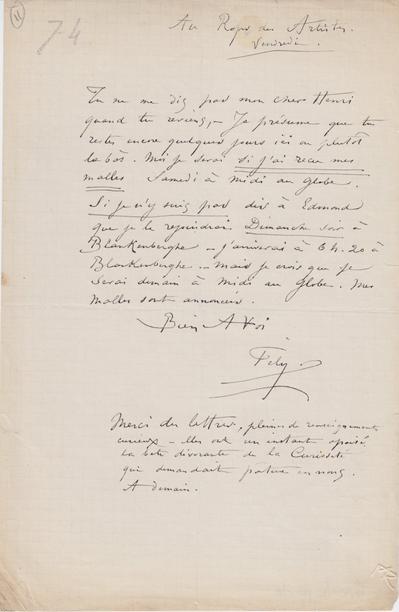 11
74
Au Repos des Artistes.
Vendredi.
Tu ne me dis pas mon cher Henri
quand tu reviens, – Je présume que tu
restes encore quelques jours ici ou plutôt
là bas. Moi je serai si j'ai reçu mes
malles Samedi à midi au Globe.
Si je n'y suis pas dis à Edmond
que je le rejoindrai Dimanche soir à
Blankenberghe – j'arriverai à 6 h. 20 à
Blankenberghe – mais je crois que je
serai demain à midi au Globe. Mes
malles sont annoncées.
Bien à toi
Fély.
Merci des lettres, pleines de renseignements
curieux – elles ont un instant apaisé
la bête dévorante de la Curiosité
qui demandait pature en nous.
A Demain.